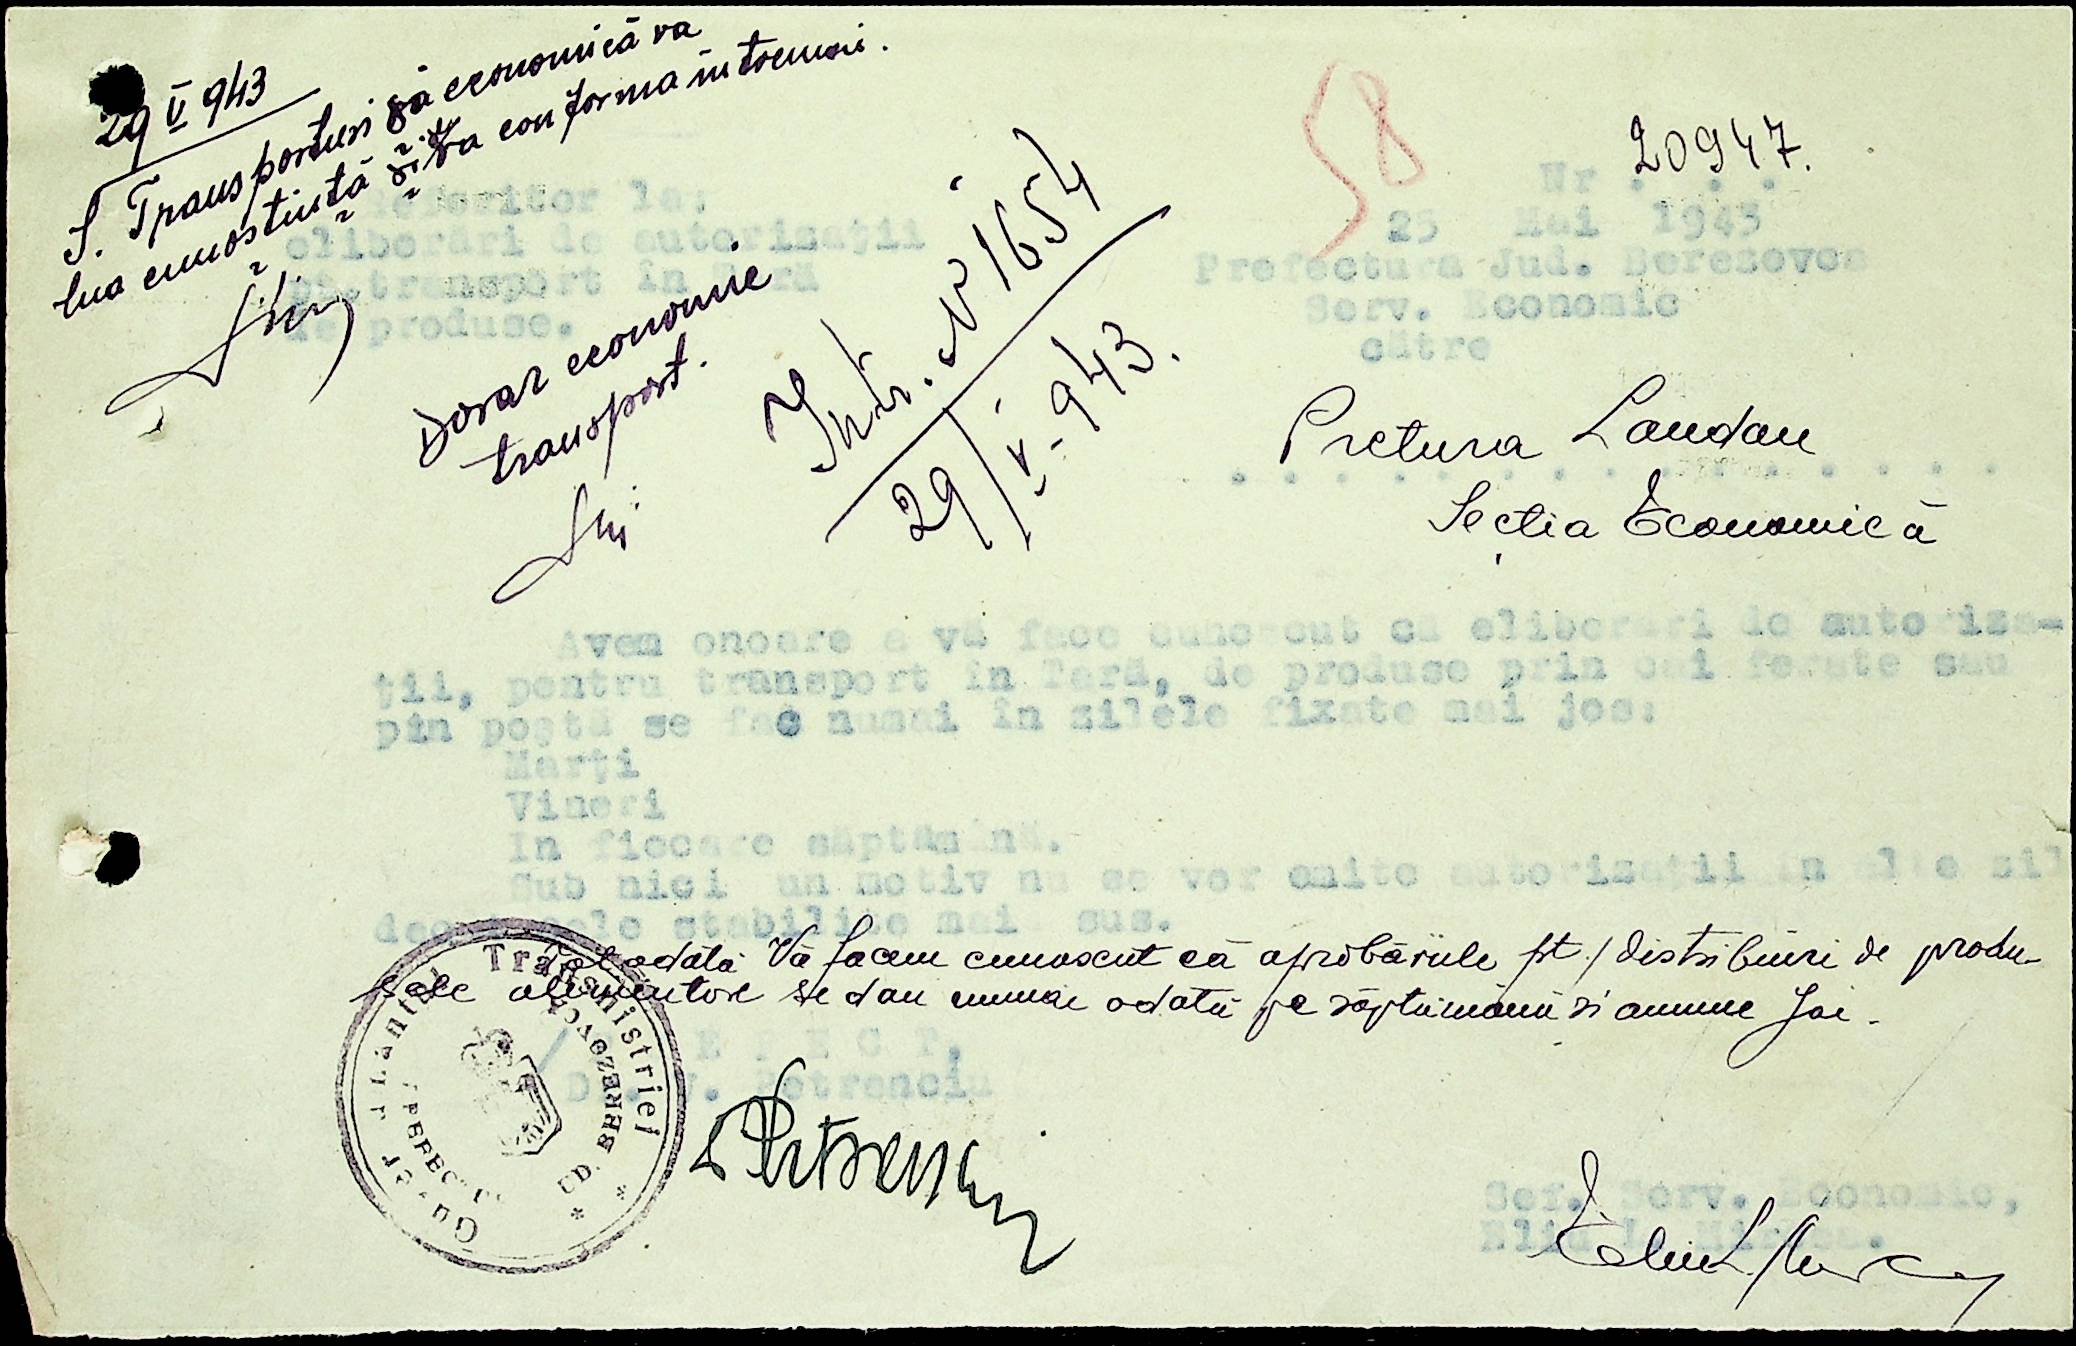 29 V 943
S. Transporturi să economică va
lua cunoștință și va conforma întocmai.
Dosar economie
transport.
Intr. No 1654
29/V-943.
58
Nr . . . 20947.
25 Mai 1943
Prefectura Jud. Berezovca
Serv. Economic
către
Pretura Landau
Secția Economică
Referitor la:
eliberări de autorizații
pt. transport în Țară
de produse.
Avem onoare a vă face cunoscut că eliberari de autoriza-
ții, pentru transport în Țară, de produse prin cai ferate sau
pin poștă se fac numai în zilele fixate mai jos:
Marți
Vineri
In fiecare săptămînă.
Sub nici un motiv nu se vor emite autorizații in alte zil
decît cele stabilite mai sus.
Tot odată Vă facem cunoscut că aprobăriile pt./distribuiri de produ-
sele alimentare se dau numai odată pe săptămână si anume Joi.
PREFECT,
Dr. J. Petrenciu
Guver Lântul Transnistriei
PREFECT. JUD. BEREZOVCA
Sef. Serv. Economic,